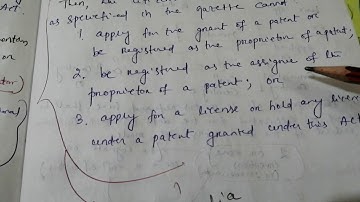 Act.
Then,
as specified in the gazette cannot
1. apply for the grant of a patent or
be registered as the proprietor of a patent;
2. be registered as the assignee of the
proprietor of a patent; or
3. apply for a license or hold any license
under a patent granted under this Act
on